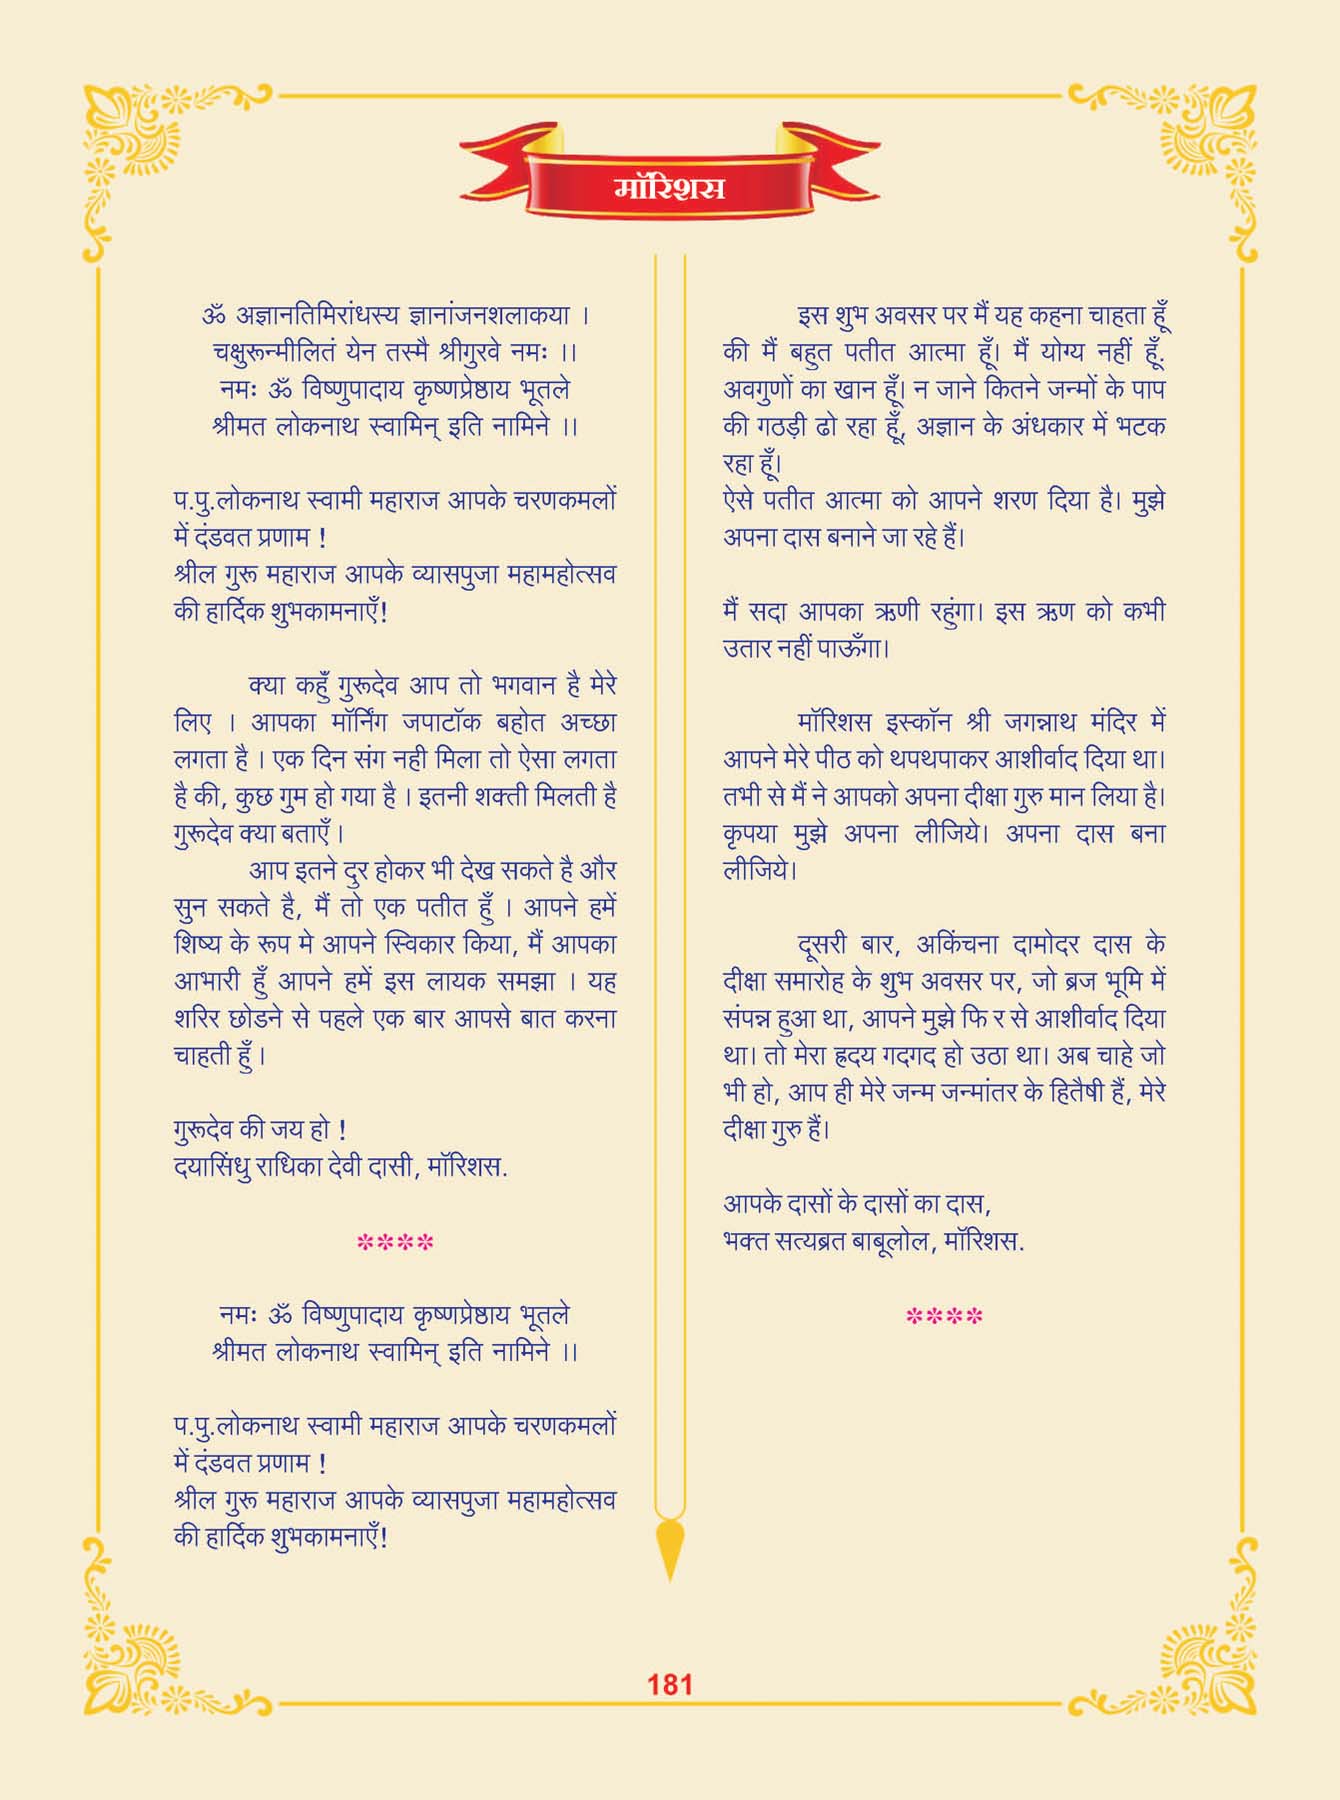 मॉरिशस
ॐ अज्ञानतिमिरांधस्य ज्ञानांजनशलाकया ।
चक्षुरून्मीलितं येन तस्मै श्रीगुरवे नमः ।।
नमः ॐ विष्णुपादाय कृष्णप्रेष्ठाय भूतले
श्रीमत लोकनाथ स्वामिन् इति नामिने ।।
प.पु.लोकनाथ स्वामी महाराज आपके चरणकमलों
में दंडवत प्रणाम !
श्रील गुरू महाराज आपके व्यासपुजा महामहोत्सव
की हार्दिक शुभकामनाएँ!
क्या कहुँ गुरूदेव आप तो भगवान है मेरे
लिए । आपका मॉर्निंग जपाटॉक बहोत अच्छा
लगता है । एक दिन संग नही मिला तो ऐसा लगता
है की, कुछ गुम हो गया है । इतनी शक्ती मिलती है
गुरूदेव क्या बताएँ ।
आप इतने दुर होकर भी देख सकते है और
सुन सकते है, मैं तो एक पतीत हुँ । आपने हमें
शिष्य के रूप मे आपने स्विकार किया, मैं आपका
आभारी हुँ आपने हमें इस लायक समझा । यह
शरिर छोडने से पहले एक बार आपसे बात करना
चाहती हुँ ।
गुरूदेव की जय हो !
दयासिंधु राधिका देवी दासी, मॉरिशस.
****
नमः ॐ विष्णुपादाय कृष्णप्रेष्ठाय भूतले
श्रीमत लोकनाथ स्वामिन् इति नामिने ।।
प.पु.लोकनाथ स्वामी महाराज आपके चरणकमलों
में दंडवत प्रणाम !
श्रील गुरू महाराज आपके व्यासपुजा महामहोत्सव
की हार्दिक शुभकामनाएँ!
इस शुभ अवसर पर मैं यह कहना चाहता हूँ
की मैं बहुत पतीत आत्मा हूँ। मैं योग्य नहीं हूँ.
अवगुणों का खान हूँ। न जाने कितने जन्मों के पाप
की गठड़ी ढो रहा हूँ, अज्ञान के अंधकार में भटक
रहा हूँ।
ऐसे पतीत आत्मा को आपने शरण दिया है। मुझे
अपना दास बनाने जा रहे हैं।
मैं सदा आपका ऋणी रहुंगा। इस ऋण को कभी
उतार नहीं पाऊँगा।
मॉरिशस इस्कॉन श्री जगन्नाथ मंदिर में
आपने मेरे पीठ को थपथपाकर आशीर्वाद दिया था।
तभी से मैं ने आपको अपना दीक्षा गुरु मान लिया है।
कृपया मुझे अपना लीजिये। अपना दास बना
लीजिये।
दूसरी बार, अकिंचना दामोदर दास के
दीक्षा समारोह के शुभ अवसर पर, जो ब्रज भूमि में
संपन्न हुआ था, आपने मुझे फि र से आशीर्वाद दिया
था। तो मेरा ह्रदय गदगद हो उठा था। अब चाहे जो
भी हो, आप ही मेरे जन्म जन्मांतर के हितैषी हैं, मेरे
दीक्षा गुरु हैं।
आपके दासों के दासों का दास,
भक्त सत्यब्रत बाबूलोल, मॉरिशस.
****
181